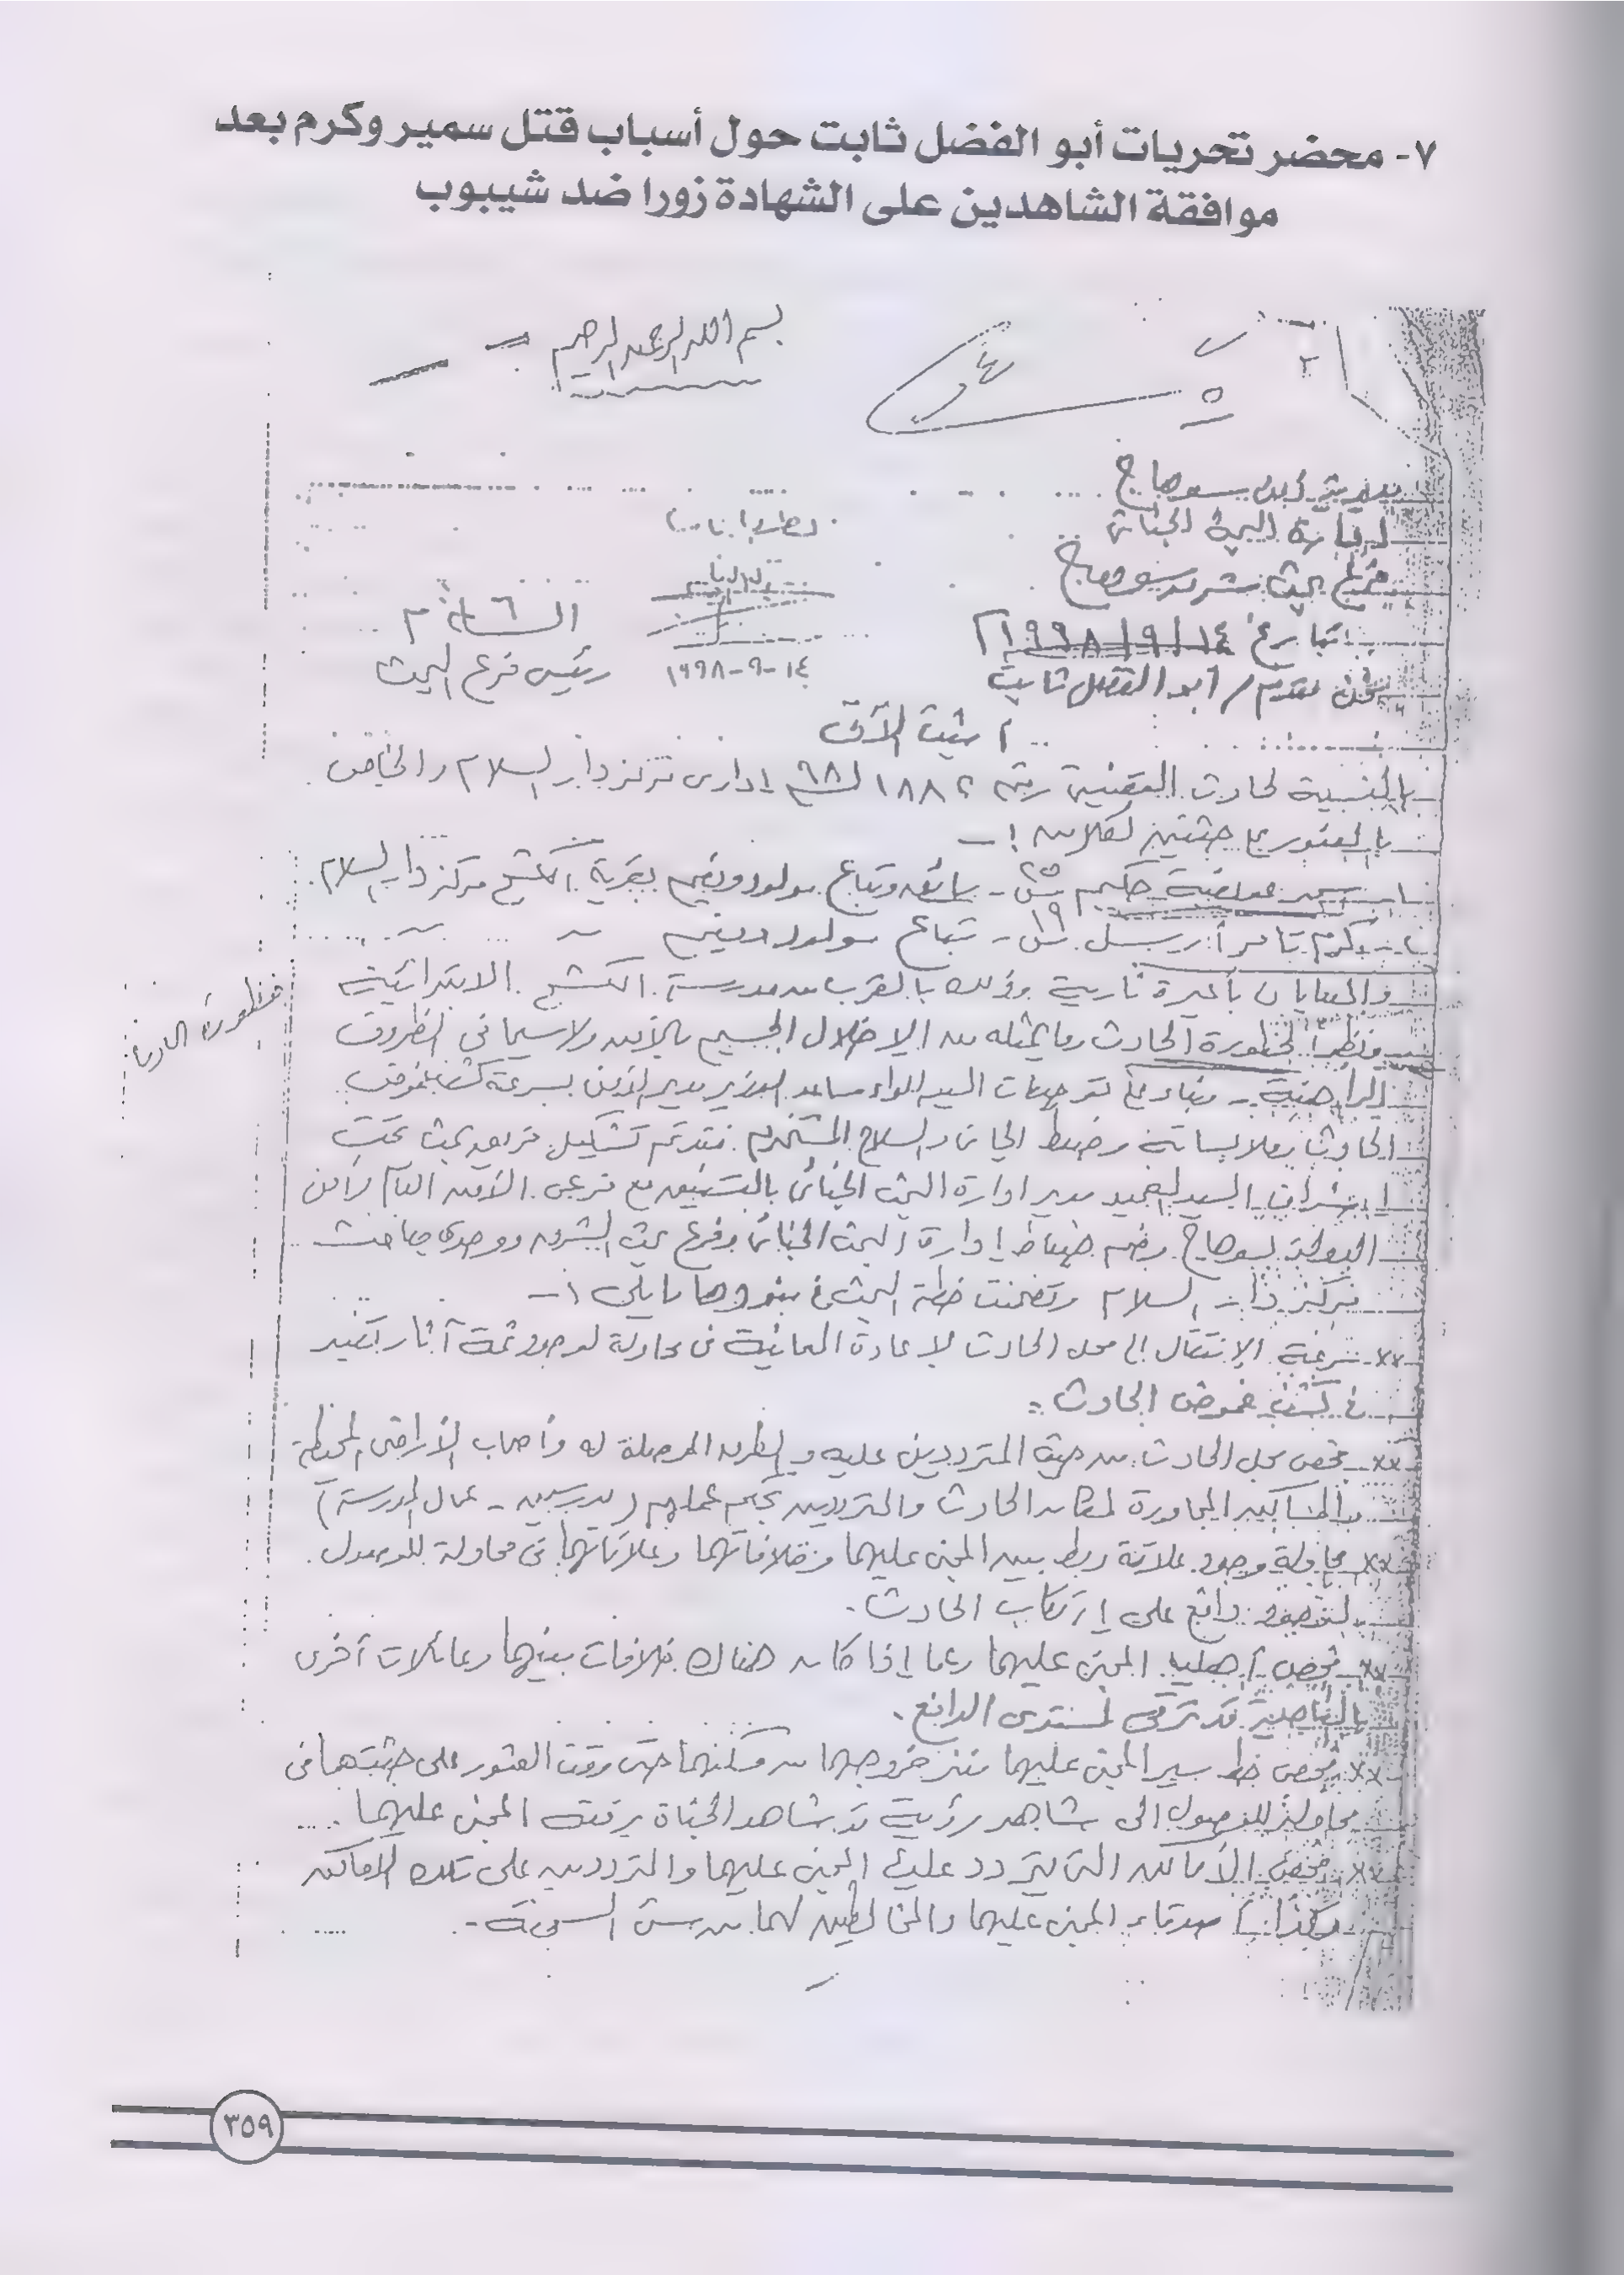 ٧- محضر تحريات أبو الفضل ثابت حول أسباب قتل سمير وكرم بعد
موافقة الشاهدين على الشهادة زورا ضد شيبوب
بسم الله الرحمن الرحيم
مديرية أمن سوهاج
إدارة البحث الجنائى
فرع بحث شرق سوهاج
الساعة ٦ م
بتاريخ ١٤/٩/١٩٩٨
١٤-٩-١٩٩٨
رئيس فرع البحث
نحن مقدم/ أبو الفضل ثابت
أثبت الآتى
بالنسبة لحادث القضية رقم ١٨٨٢ لسنة ٩٨ إدارى مركز دار السلام والخاص
بالعثور على جثتين لكلا من :-
١- سمير عويضة حكيم ٢٥ س - سائق وتباع مولود ومقيم بقرية الكشح مركز دار السلام
٢- كرم تامر أرسل ١٩ س - تباع مولود ومقيم
والمصابان بأعيرة نارية وذلك بالقرب من مدرسة الكشح الابتدائية
خطورة الحادث
ونظراً لخطورة الحادث وما يمثله من الإخلال الجسيم بالأمن ولاسيما فى الظروف
الراهنة - وبناء على توجيهات السيد اللواء مساعد الوزير مدير الأمن بسرعة كشف غموض
الحادث وملابساته وضبط الجانى والسلاح المستخدم فقد تم تشكيل فريق بحث تحت
إشراف السيد العميد مدير إدارة البحث الجنائى بالتنسيق مع فرعى الأمن العام وأمن
الدولة بسوهاج وضم ضباط إدارة البحث الجنائى وفرع بحث الشرق ووحدة مباحث
مركز دار السلام وتضمنت خطة البحث فى بنودها ما يلى :-
×× سرعة الإنتقال إلى محل الحادث لإعادة المعاينة فى محاولة لوجود ثمة آثار تفيد
فى كشف غموض الحادث .
×× فحص محل الحادث من حيث المترددين عليه والطرق الموصلة له وأصحاب الأراضى المحيطة
والمساكن المجاورة لمكان الحادث والمترددين بحكم عملهم (مدرسين - عمال المدرسة)
×× محاولة وجود علاقة ربط بين المجنى عليهما وخلافاتهما وعلاقاتهما فى محاولة للوصول
على إرتكاب الحادث .
×× فحص أهلية المجنى عليهما وعما إذا كان هناك خلافات بينهما وعائلات أخرى
بالناحية قد ترقى لمستوى الدافع .
×× فحص خط سير المجنى عليهما منذ خروجهما من مسكنهما حتى وقت العثور على جثتهما فى
محاولة للوصول الى شاهد رؤية قد شاهد الجناة برفقة المجنى عليهما
×× فحص الأماكن التى يتردد عليها المجنى عليهما والمترددين على تلك الأماكن
وكذا أصدقاء المجنى عليهما والمخالطين لهما من سئ السمعة .
٣٥٩